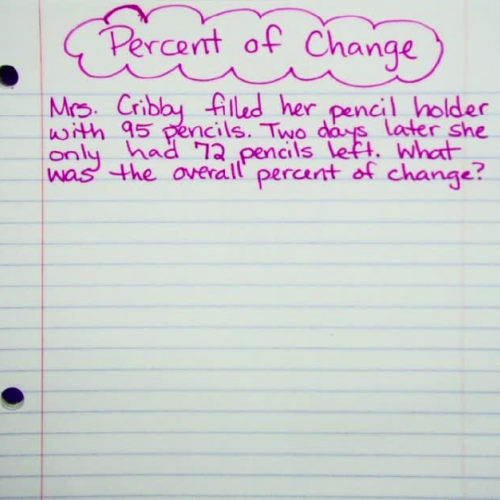 Percent of Change
Mrs. Cribby filled her pencil holder
with 95 pencils. Two days later she
only had 72 pencils left. What
was the overall percent of change?